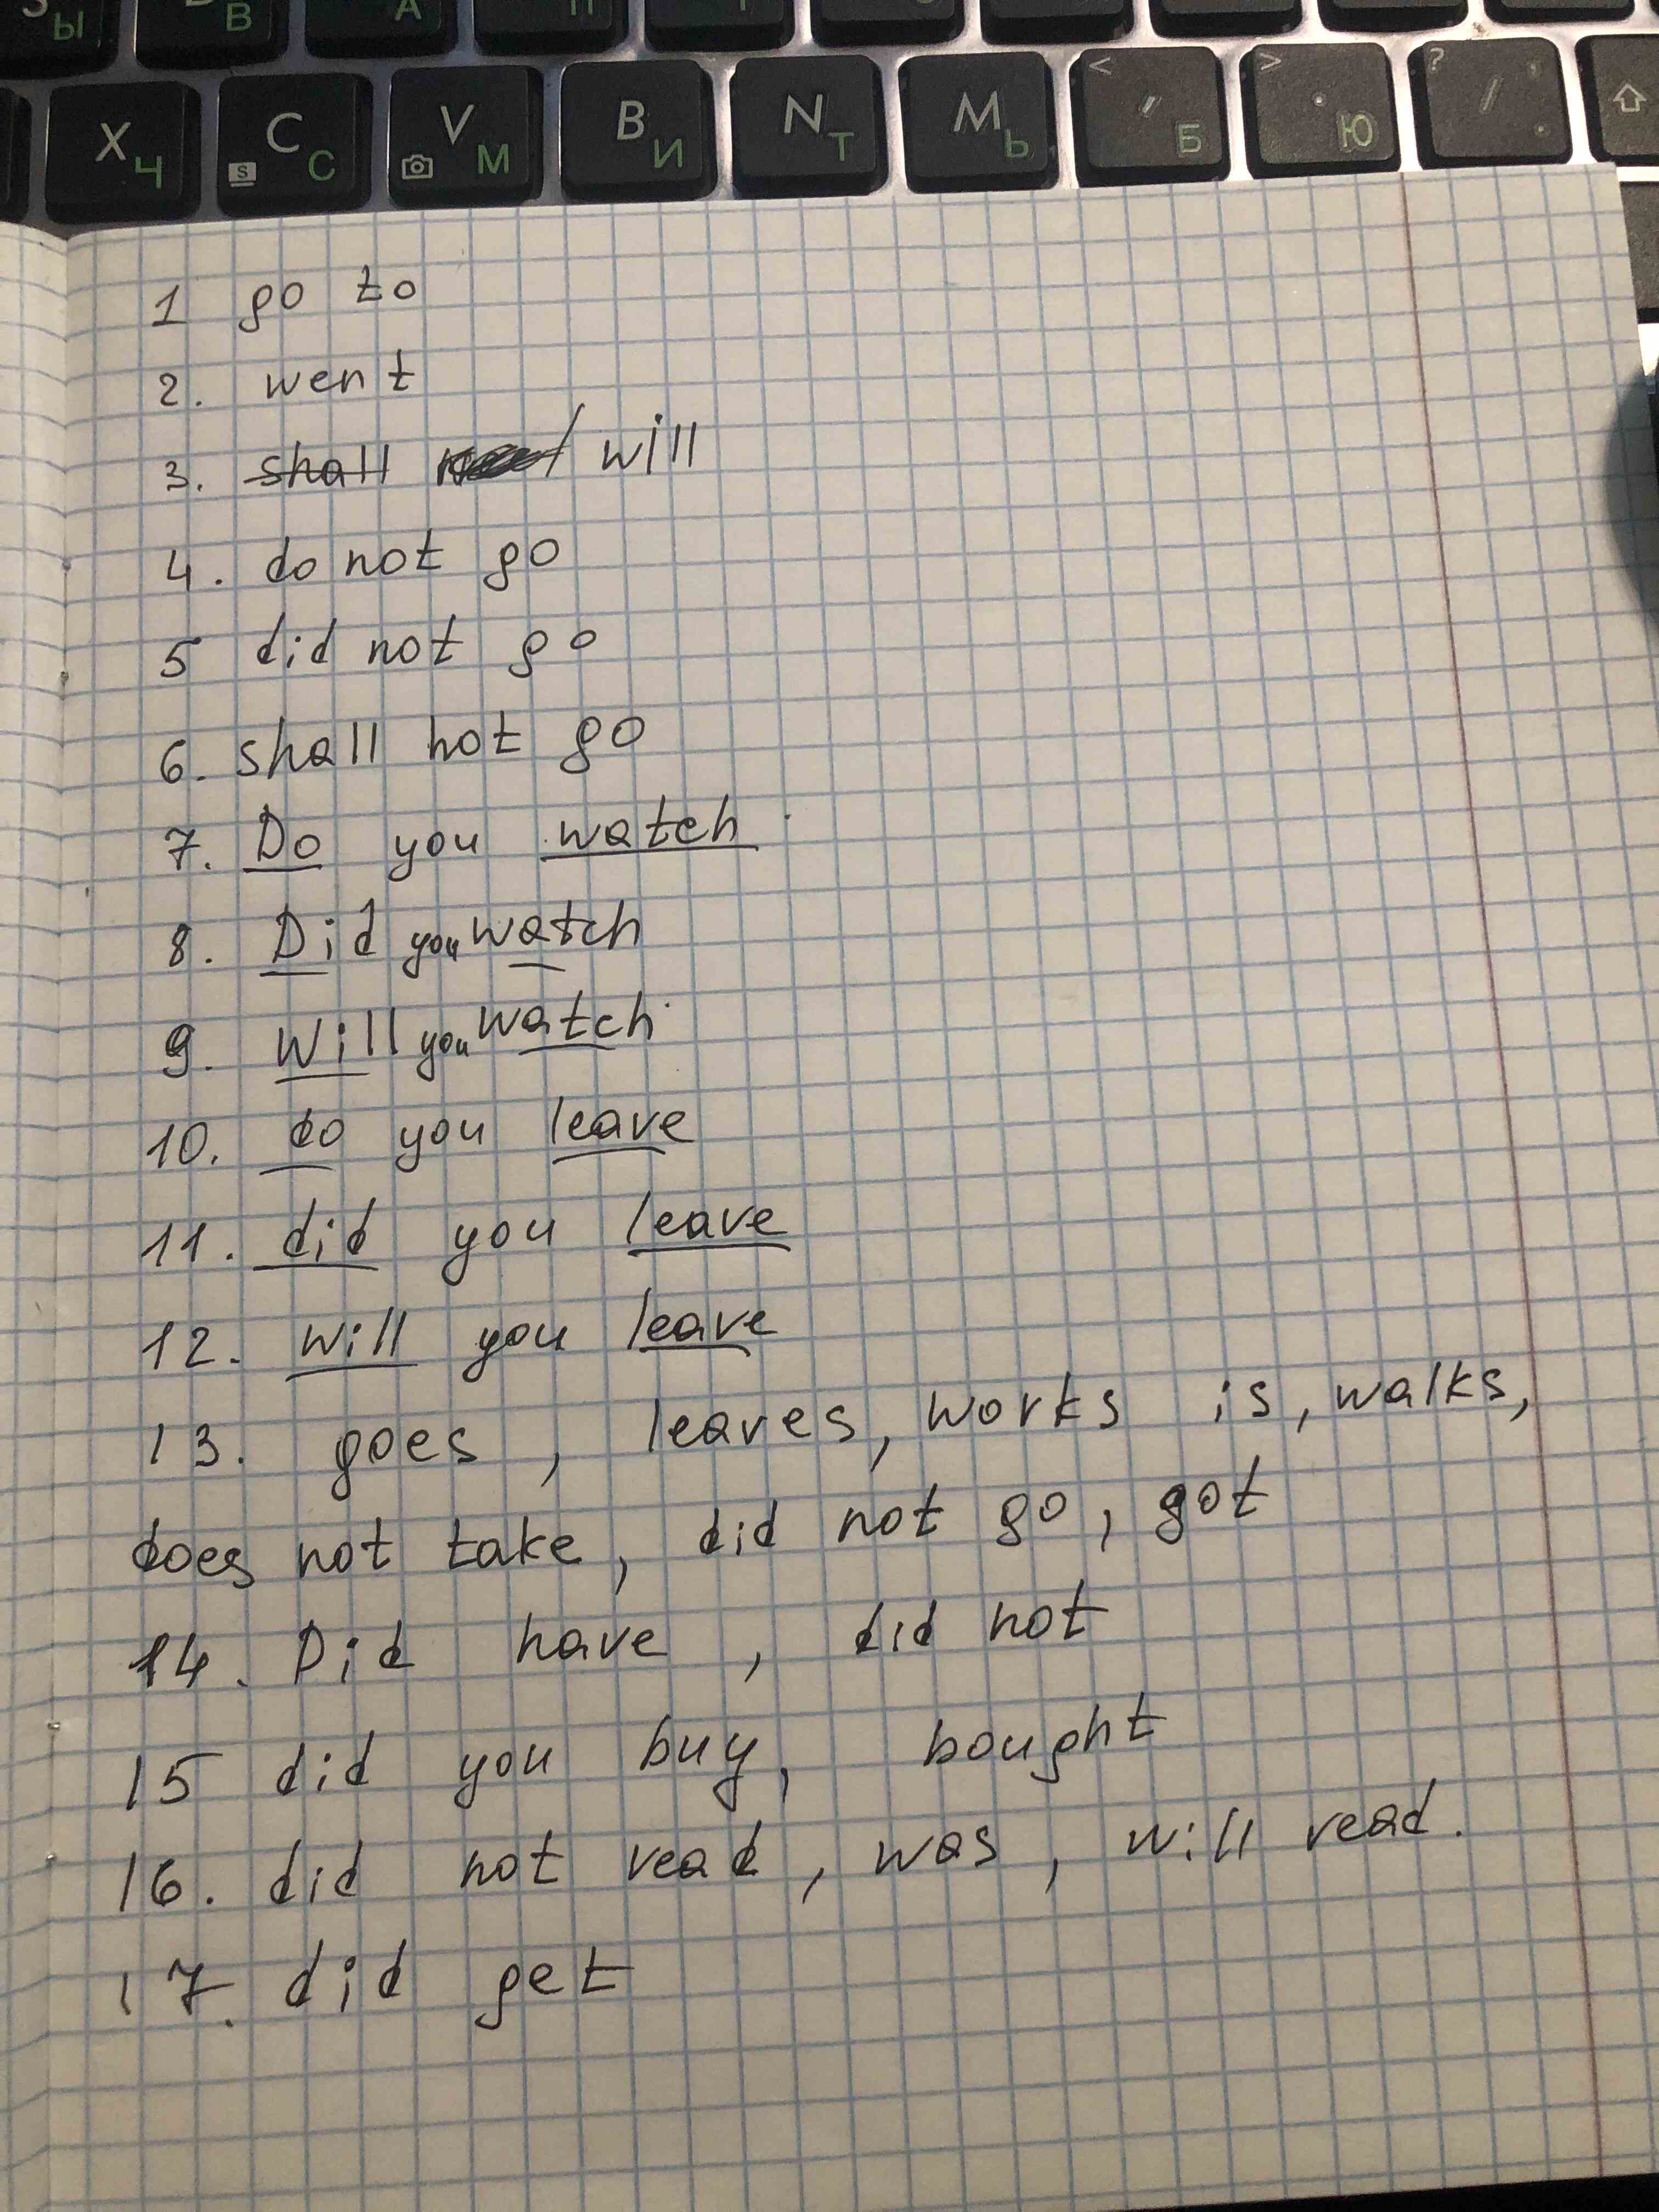 Ы В А П
X Ч C S С V М B И N Т M Ь < , Б > . Ю ? / , .
1 go to
2. went
3. shall will
4. do not go
5 did not go
6. shall not go
7. Do you watch
8. Did you watch
9. Will you watch
10. do you leave
11. did you leave
12. will you leave
13. goes, leaves, works is, walks,
does not take, did not go, got
14. Did have, did not
15 did you buy, bought
16. did not read, was, will read.
17. did get